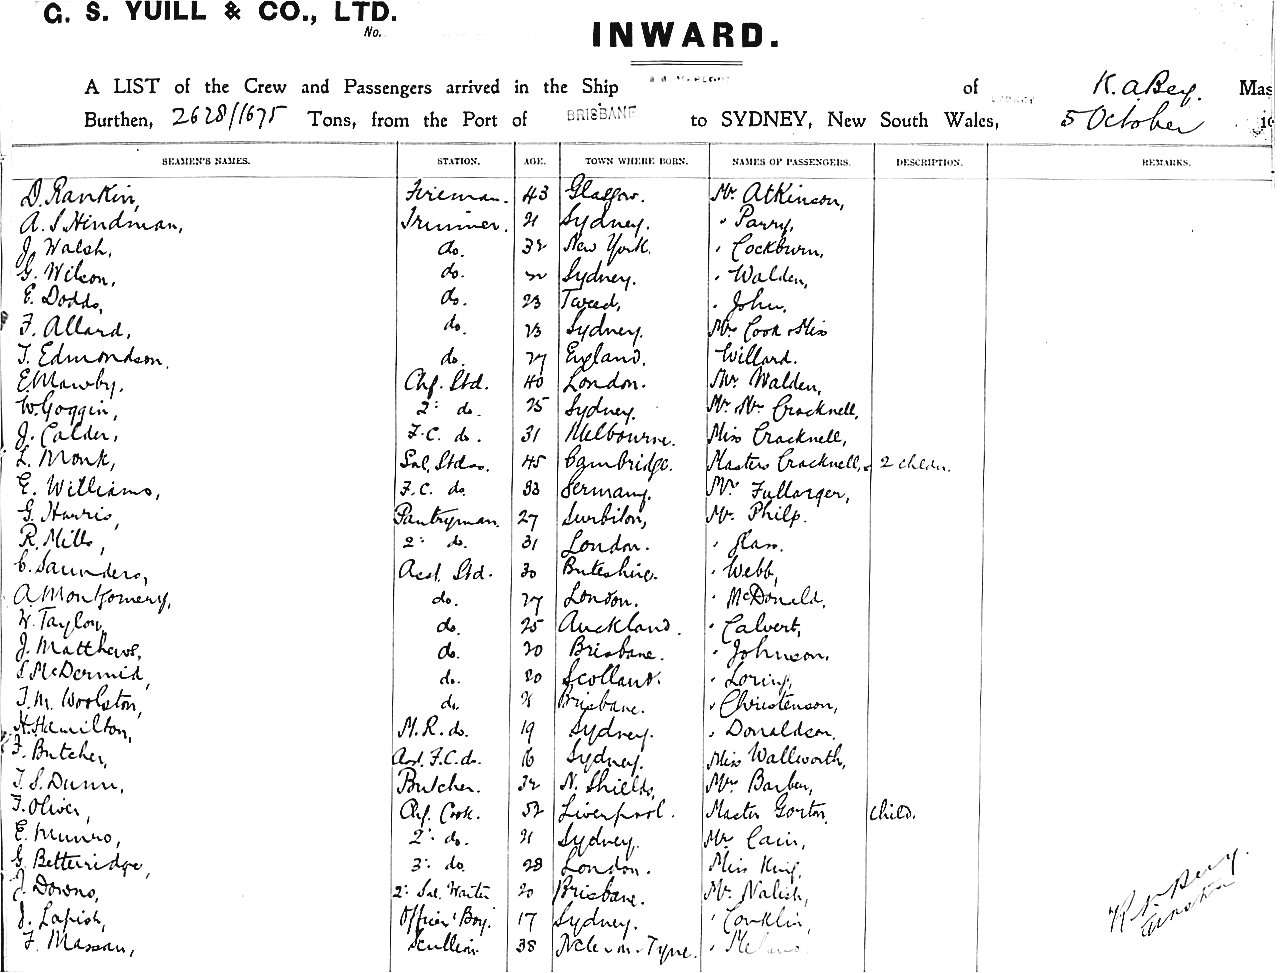 G. S. YUILL & CO., LTD.
No.
INWARD.
A LIST of the Crew and Passengers arrived in the Ship of K. a Bey. Mas
Burthen, 2628/1675 Tons, from the Port of BRISBANE to SYDNEY, New South Wales, 5 October
SEAMEN'S NAMES. STATION. AGE. TOWN WHERE BORN. NAMES OF PASSENGERS. DESCRIPTION. REMARKS.
D. Rankin, Fireman. 43 Glasgow. Mr. Atkinson,
A. S Hindman, Trimmer. 21 Sydney. " Parry,
J. Walsh, do. 32 New York. " Cockburn,
G. Wilson, do. Sydney. " Walden,
E. Dodds, do. 23 Tweed, " John,
F. Allard, do. 23 Sydney. Mr. Cook & Miss
T. Edmondson. do. 27 England. Willard.
E Mawby. Chf. Std. 40 London. Mr. Walden,
W. Goggin, 2" do. 25 Sydney. Mr. Mrs Cracknell,
J. Calder, F.C. do. 31 Melbourne. Miss Cracknell,
L. Monk, Sal. Stdss. 45 Cambridge. Masters Cracknell, 2 childn.
E. Williams, F.C. do. 33 Germany. Mr. Fullarger,
G. Harris, Pantryman. 27 Surbiton, Mr. Philp.
R. Mills, 2" do. 31 London. " Glass.
C. Saunders, Asst. Std. 30 Buteshire. " Webb,
A. Montgomery, do. 27 London. " McDonald.
W. Taylor, do. 25 Auckland. " Calvert,
J. Matthews, do. 20 Brisbane. " Johnson,
S McDermid, do. 20 Scotland. " Loring,
T. M. Woolston, do. 21 Brisbane. " Christenson,
H. Hamilton, M.R. do. 19 Sydney. " Donaldson,
F. Butcher, Asst. F.C. do. 16 Sydney. Miss Wallworth,
T. S. Dunn, Butcher. 32 N. Shields, Mr. Barber,
F. Oliver, Chf. Cook. 52 Liverpool. Master Gorton, child.
E. Munro, 2" do. 21 Sydney. Mr. Cain,
G. Betteridge, 3" do. 28 London. Miss King,
J. Downs, 2" Sal. Waiter 20 Brisbane. Mr. Nalish,
J. Lapish, Officers' Boy. 17 Sydney. " Conklin,
F. Massau, Scullion 38 Ncle-on-Tyne.